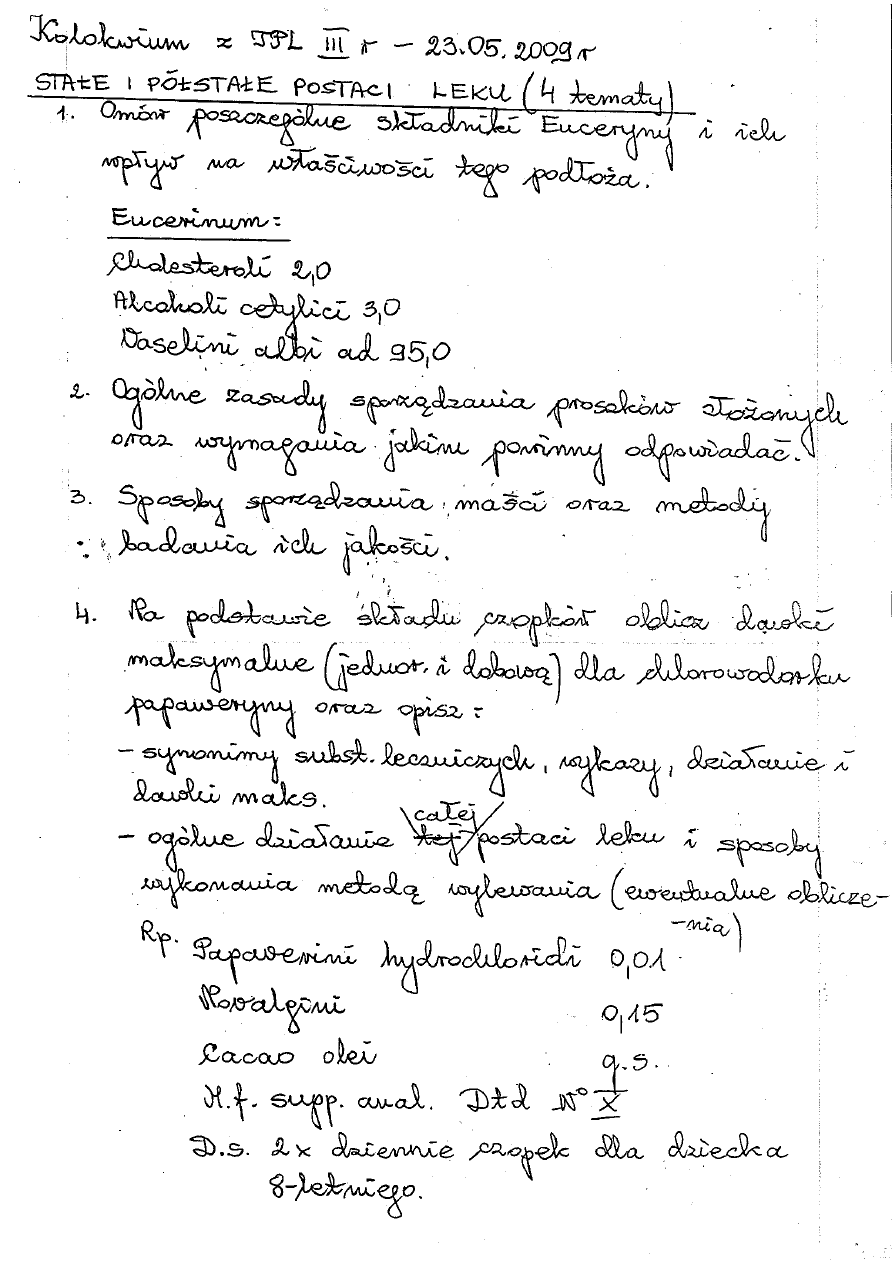 Kolokwium z TPL III r – 23.05.2009r
STAŁE I PÓŁSTAŁE POSTACI LEKU (4 tematy)
1. Omów poszczególne składniki Euceryny i ich
wpływ na właściwości tego podłoża.
Eucerinum:
Cholesteroli 2,0
Alcoholi cetylici 3,0
Vaselini albi ad 95,0
2. Ogólne zasady sporządzania proszków złożonych
oraz wymagania jakim powinny odpowiadać.
3. Sposoby sporządzania maści oraz metody
badania ich jakości.
4. Na podstawie składu czopków oblicz dawki
maksymalne (jednor. i dobową) dla chlorowodorku
papaweryny oraz opisz:
– synonimy subst. leczniczych, wykazy, działanie i
dawki maks.
całej
– ogólne działanie tej postaci leku i sposoby
wykonania metodą wylewania (ewentualne oblicze-
-nia)
Rp. Papaverini hydrochloridi 0,01
Novalgini 0,15
Cacao olei q.s.
M.f. supp. anal. Dtd N° X
D.s. 2x dziennie czopek dla dziecka
8-letniego.